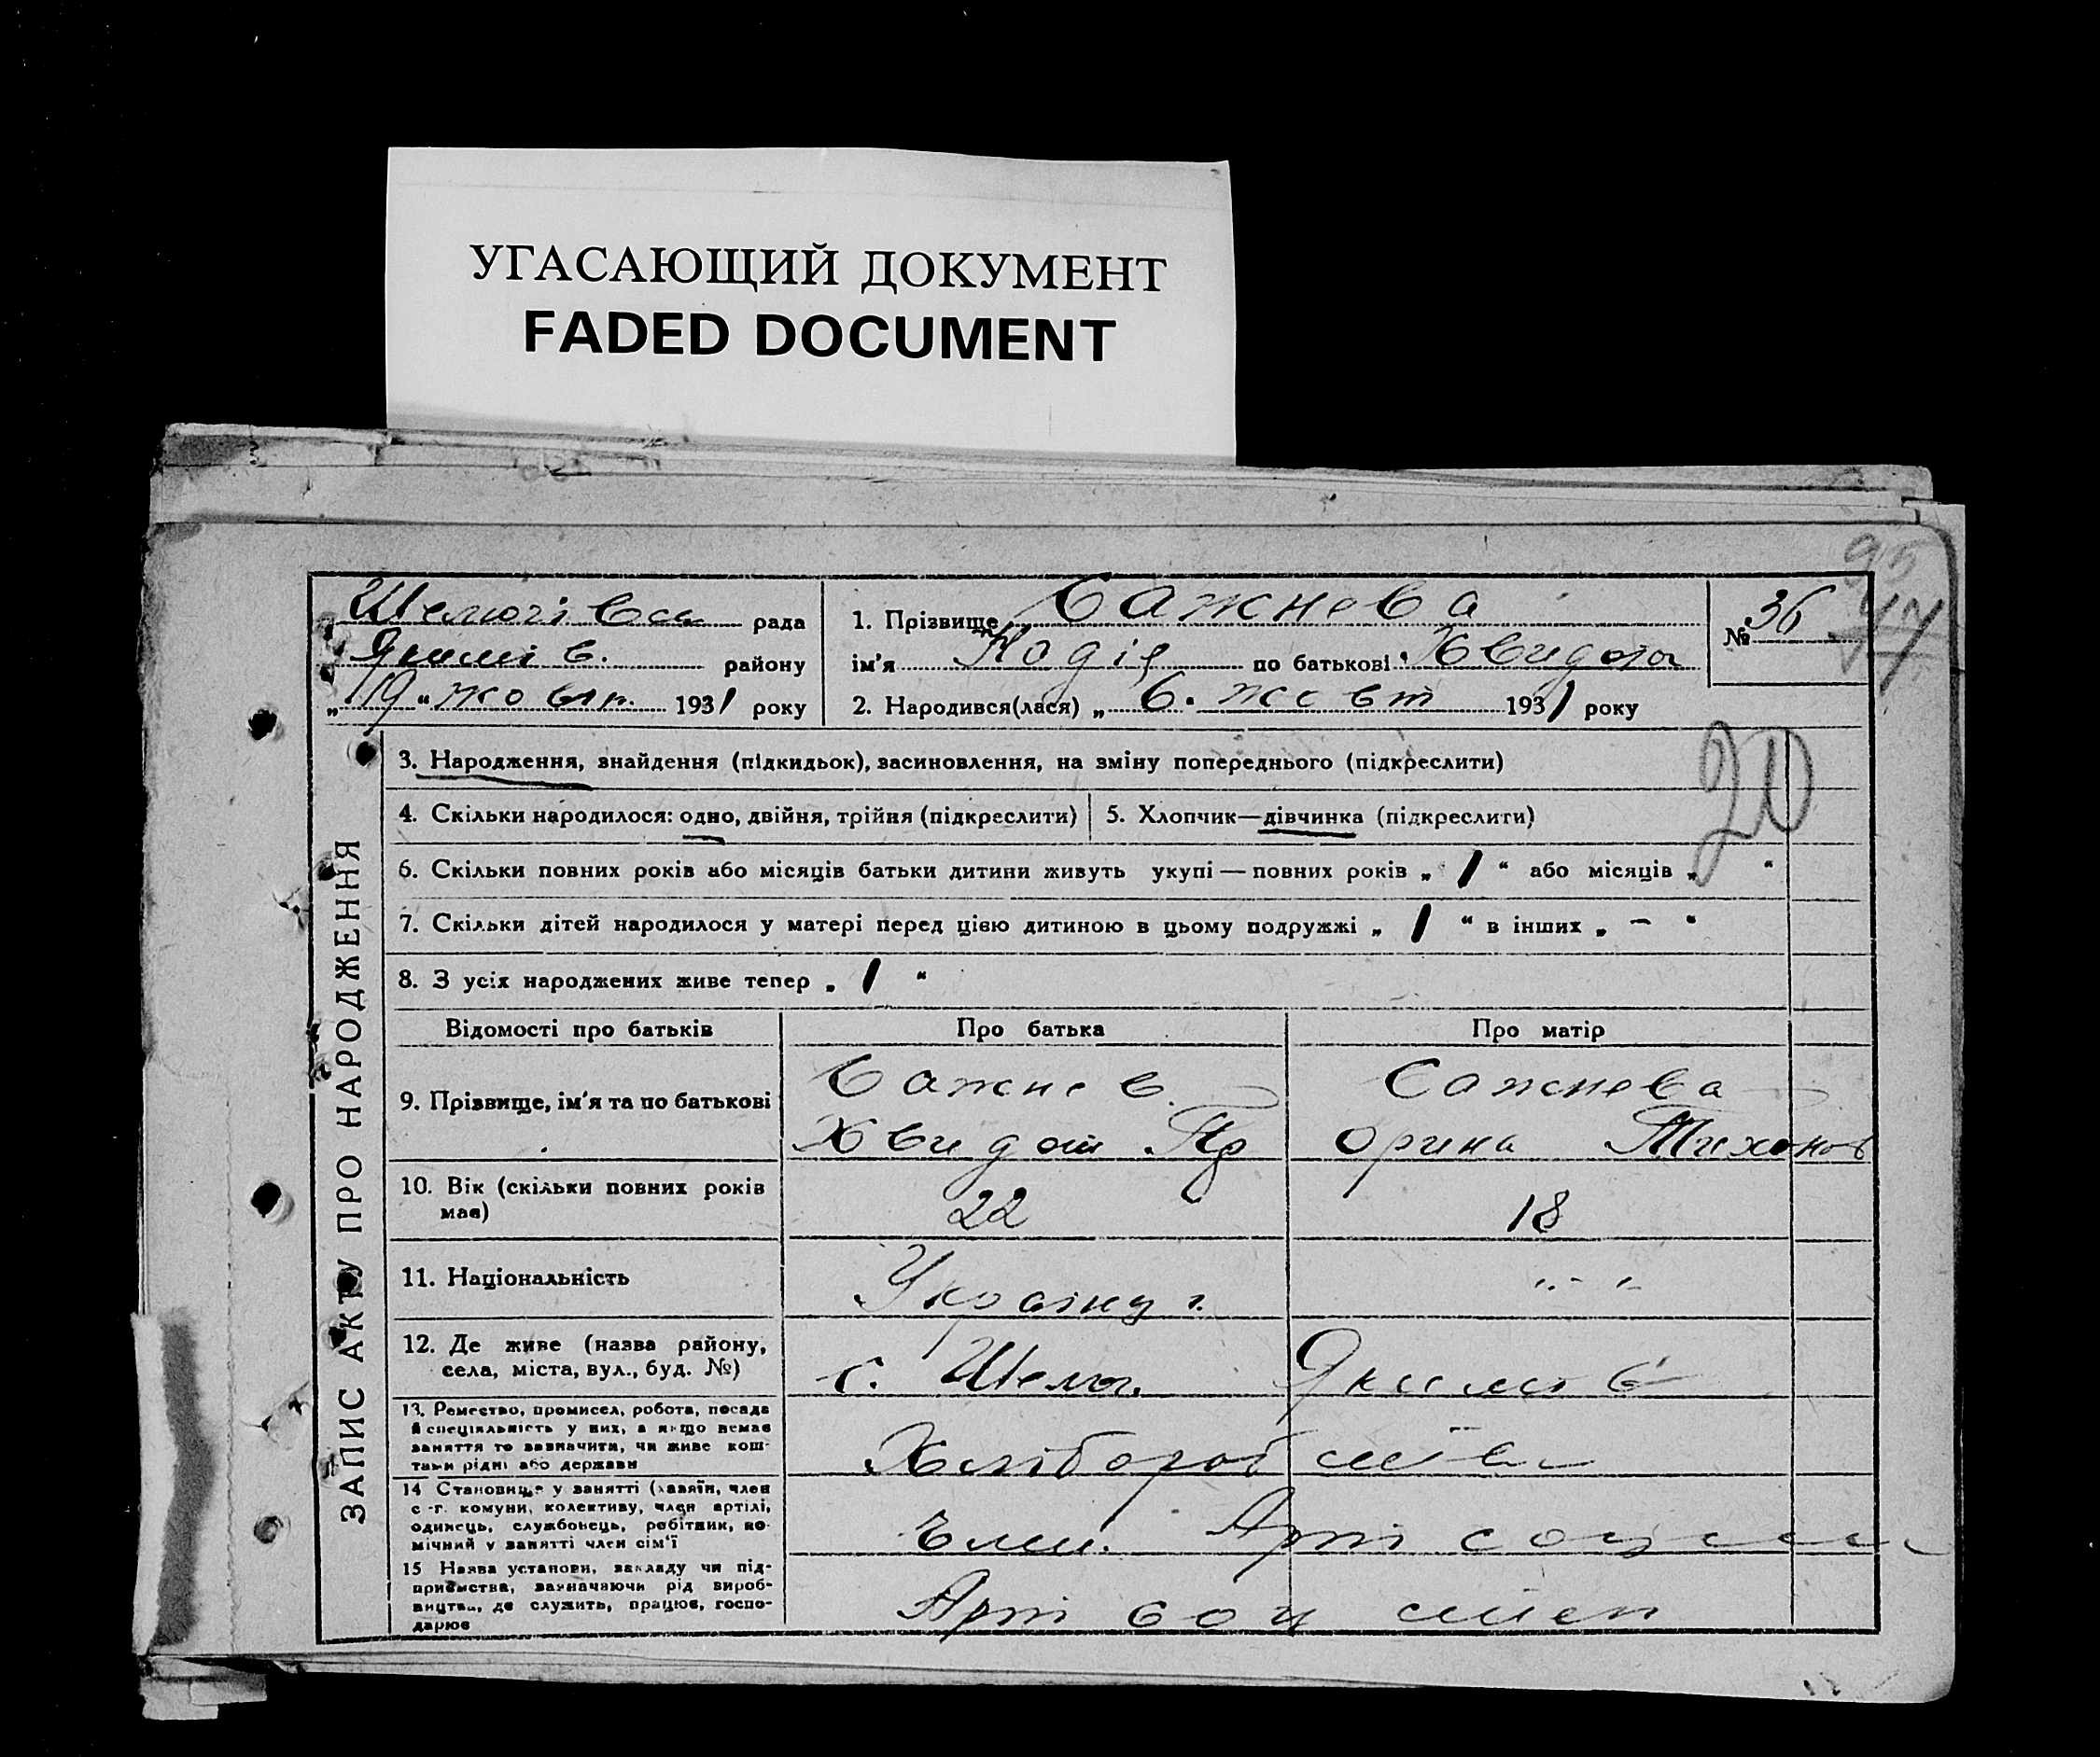 УГАСАЮЩИЙ ДОКУМЕНТ
FADED DOCUMENT
95
Шелюгівсь рада
Якимів. району
„19“ жовтн. 1931 року
1. Прізвище Сажнева
ім'я Надія по батькові Хвидота
2. Народився(лася) „6. жовт 1931 року
№ 36
47
20
ЗАПИС АКТУ ПРО НАРОДЖЕННЯ
3. Народження, знайдення (підкидьок), засиновлення, на зміну попереднього (підкреслити)
4. Скільки народилося: одно, двійня, трійня (підкреслити)
5. Хлопчик—дівчинка (підкреслити)
6. Скільки повних років або місяців батьки дитини живуть укупі — повних років „ 1 “ або місяців „ “
7. Скільки дітей народилося у матері перед цією дитиною в цьому подружжі „ 1 “ в інших „ – “
8. З усіх народжених живе тепер „ 1 “
Відомості про батьків Про батька Про матір
9. Прізвище, ім'я та по батькові
Сажнев. Сажнева
Хвидот Пр Орина Тихонов
10. Вік (скільки повних років має)
22 18
11. Національність
Україну г. „ - "
12. Де живе (назва району, села, міста, вул., буд. №)
с. Шелюг. Якимів
13. Ремество, промисел, робота, посада й спеціяльність у них, а якщо немає заняття то зазначити, чи живе коштами рідні або держави
Хлібороб
14 Становище у занятті (хазяїн, член с.-г. комуни, колективу, член артілі, одинець, службовець, робітник, помічний у занятті член сім'ї
Член. Арті
15 Назва установи, закладу чи підприємства, зазначаючи рід виробництва, де служить, працює, господарює
Арті соц степ